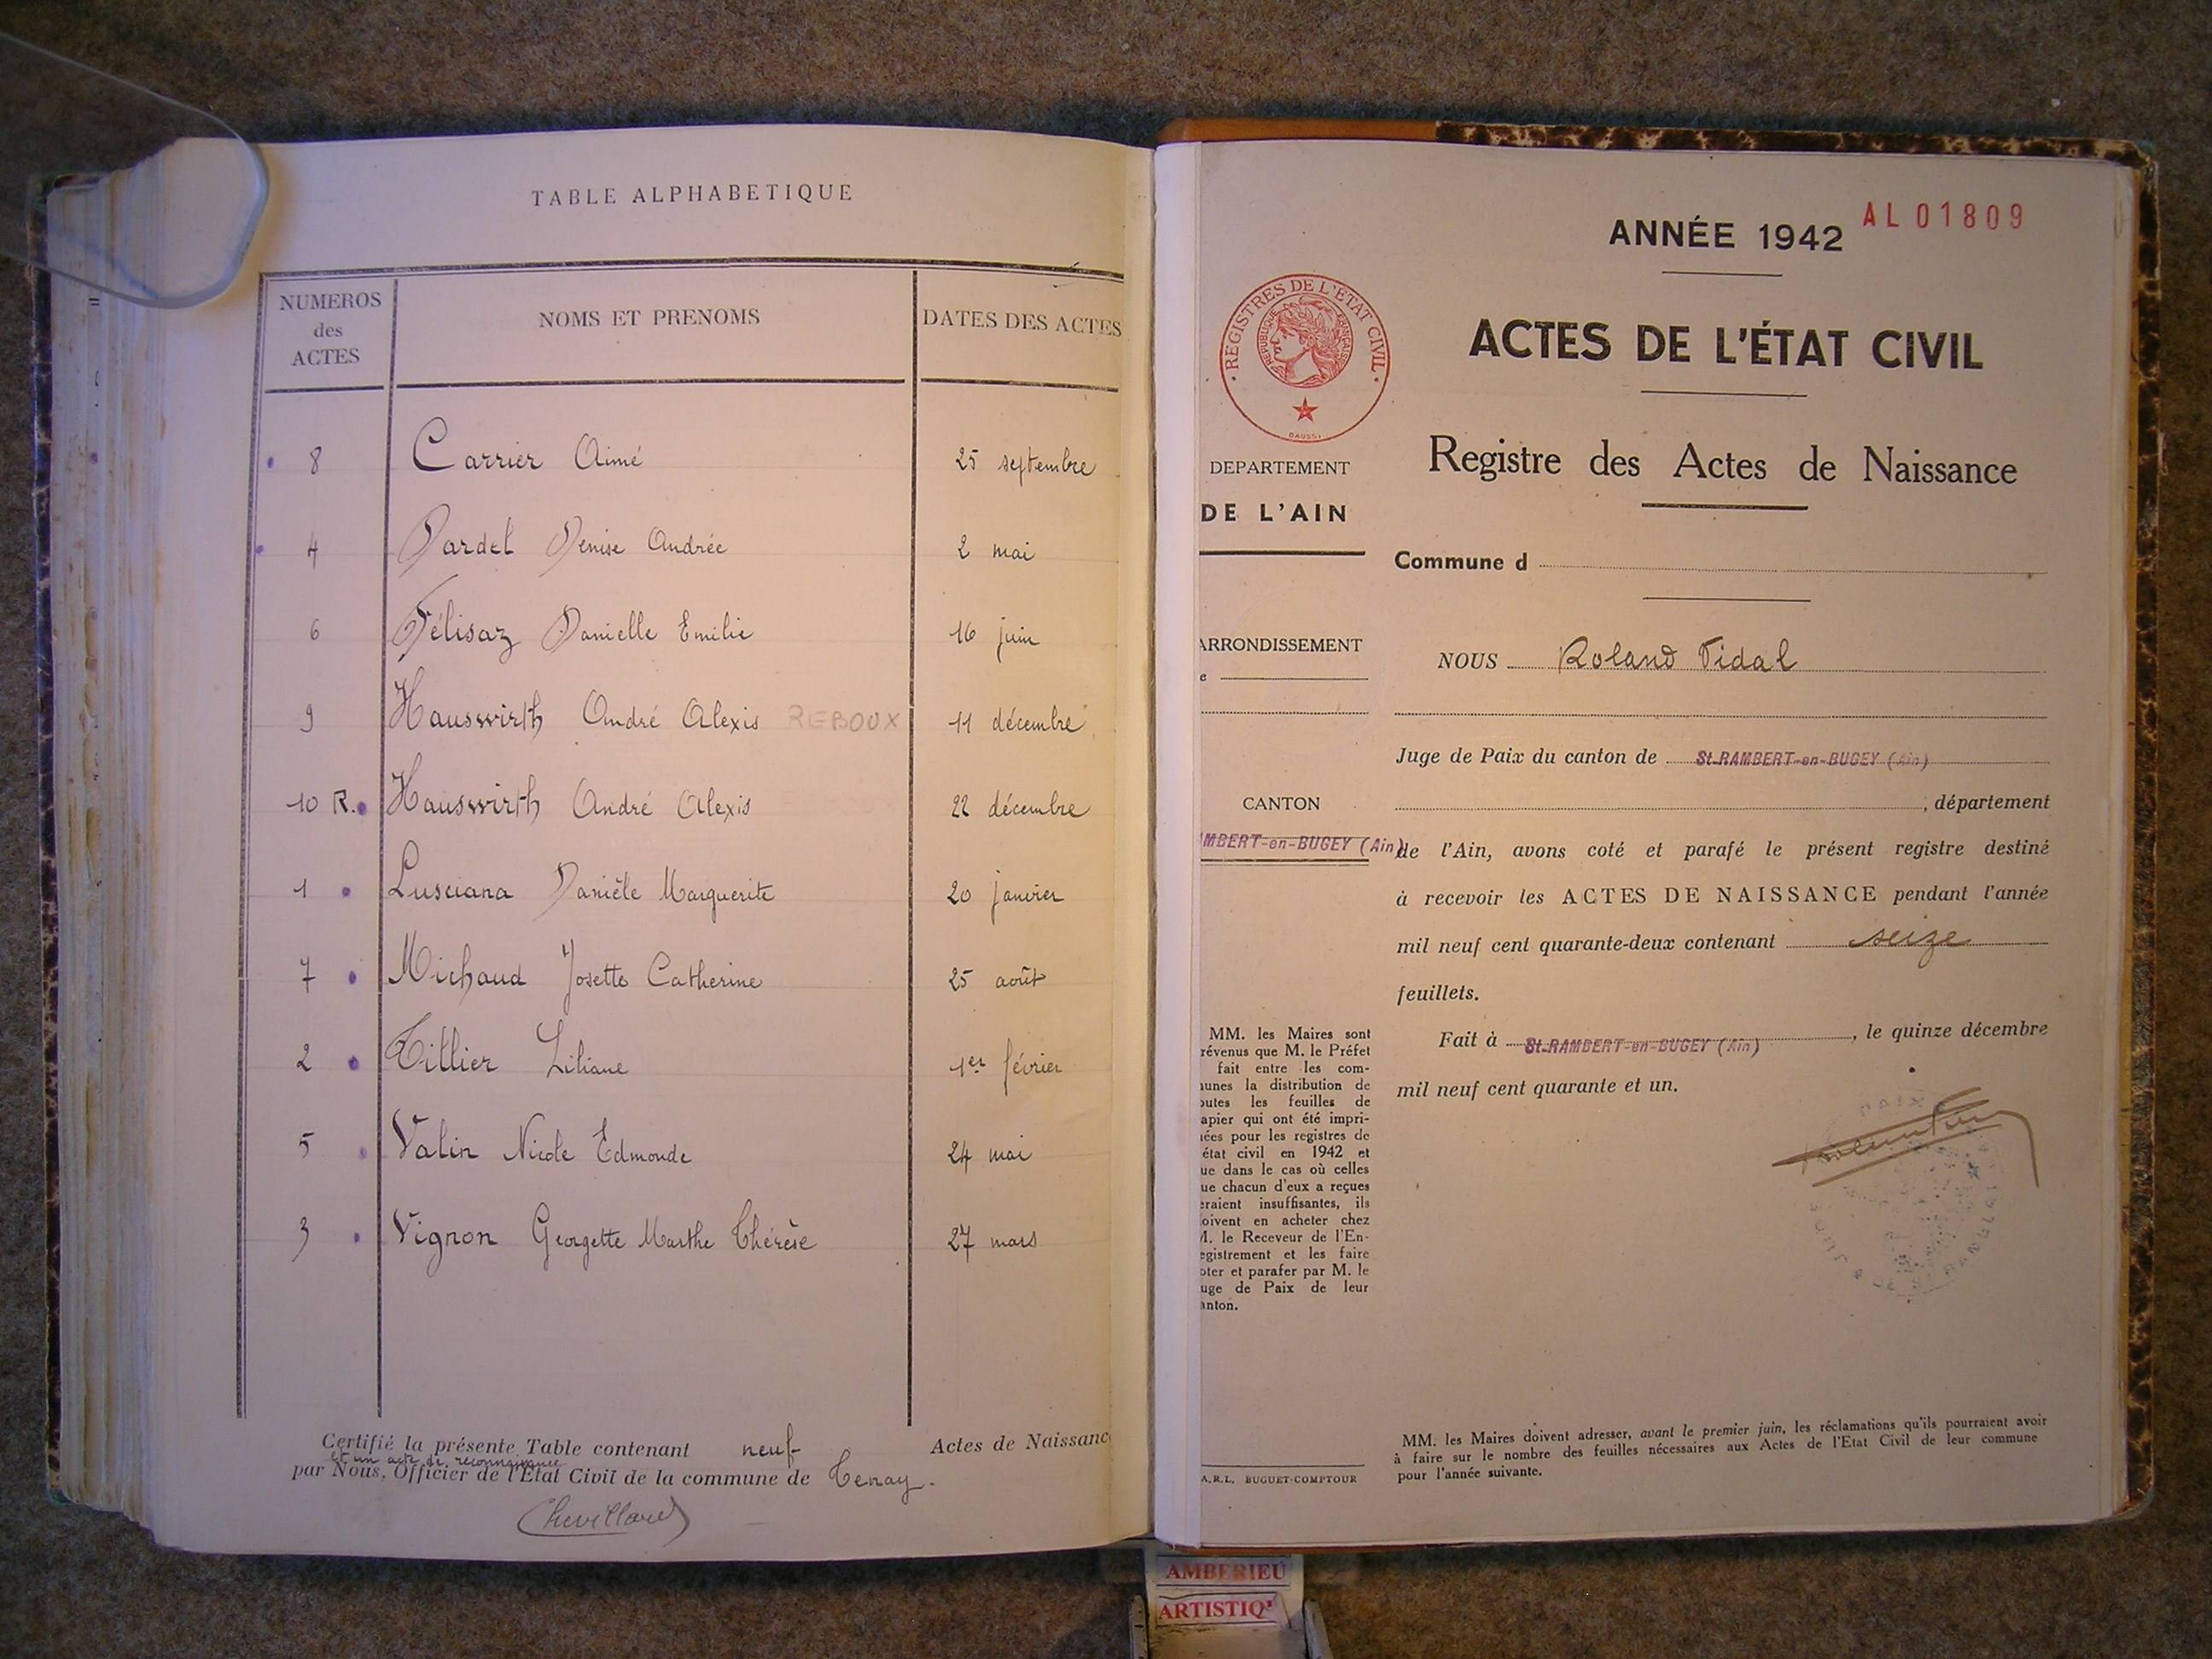 TABLE ALPHABETIQUE
NUMEROS
des
ACTES
NOMS ET PRENOMS
DATES DES ACTES
8 Carrier Aimé 25 septembre
4 Dardel Denise Andrée 2 mai
6 Félisaz Danielle Emilie 16 juin
9 Hauswirth André Alexis REBOUX 11 décembre
10 R. Hauswirth André Alexis 22 décembre
1 Lusciana Danièle Marguerite 20 janvier
7 Michaud Josette Catherine 25 août
2 Tillier Liliane 1er février
5 Valin Nicole Edmonde 24 mai
3 Vignon Georgette Marthe Thérèse 27 mars
Certifié la présente Table contenant neuf Actes de Naissanc
et un acte de reconnaissance
par Nous, Officier de l'Etat Civil de la commune de Tenay.
Chevillard
ANNÉE 1942
AL 01809
REGISTRES DE L'ETAT CIVIL
REPUBLIQUE FRANÇAISE
ACTES DE L'ÉTAT CIVIL
Registre des Actes de Naissance
DEPARTEMENT
DE L'AIN
Commune d
ARRONDISSEMENT
e
NOUS Roland Vidal
Juge de Paix du canton de St-RAMBERT-en-BUGEY (Ain)
CANTON
MBERT-en-BUGEY (Ain)
, département
de l'Ain, avons coté et parafé le présent registre destiné
à recevoir les ACTES DE NAISSANCE pendant l'année
mil neuf cent quarante-deux contenant seize
feuillets.
Fait à St-RAMBERT-en-BUGEY (Ain), le quinze décembre
mil neuf cent quarante et un.
MM. les Maires sont
révenus que M. le Préfet
fait entre les com-
unes la distribution de
outes les feuilles de
apier qui ont été impri-
ées pour les registres de
état civil en 1942 et
ue dans le cas où celles
ue chacun d'eux a reçues
eraient insuffisantes, ils
oivent en acheter chez
M. le Receveur de l'En-
egistrement et les faire
oter et parafer par M. le
uge de Paix de leur
anton.
A.R.L. BUGUET-COMPTOUR
MM. les Maires doivent adresser, avant le premier juin, les réclamations qu'ils pourraient avoir
à faire sur le nombre des feuilles nécessaires aux Actes de l'Etat Civil de leur commune
pour l'année suivante.
AMBERIEU
ARTISTIQ